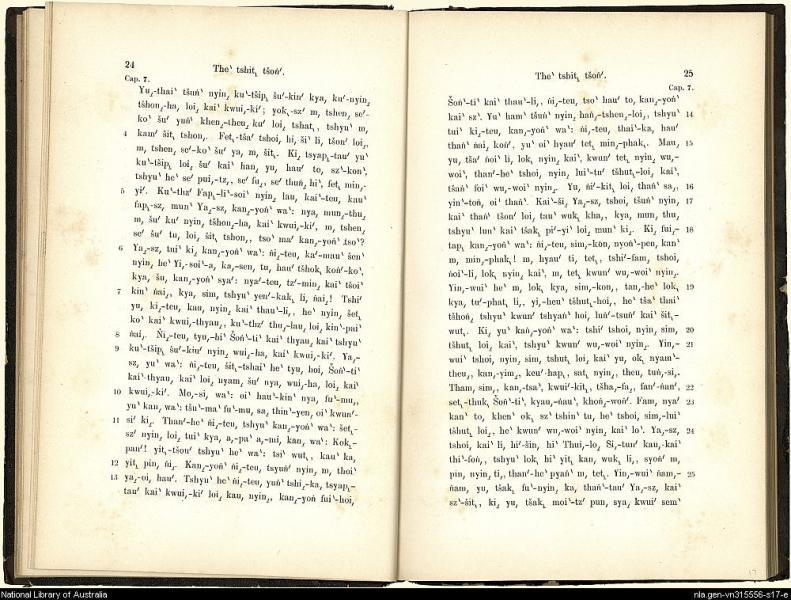 24
Theˋ tshit˛ tšoṅˊ.
Cap. 7.
Yu¸-thaiˋ tšuṅˋ nyin¸ kuˋ-tšip˛ šuˊ-kinˊ kya, kuˊ-nyin¸
tšhon¸-ha, loi¸ kaiˋ kwui¸-kiˊ; yok˛-szˊ m, tshen¸ seˊ-
koˋ šuˊ yuṅˋ khen¸-theu¸ kuˊ loi¸ tshat˛, tshyuˋ m,
4 kamˊ šit˛ tshon¸. Fet˛-tšaˊ tshoi, hi¸ šiˋ li, tšonˊ loi¸,
m, tshen¸ seˊ-koˋ šuˊ ya, m, šit˛. Ki¸ tsyap˛-tauˊ yuˋ
kuˋ-tšip˛ loi¸ šuˊ kaiˋ han¸ yu, hauˊ to, szˋ-konˋ,
tshyuˋ heˋ seˊ pui¸-tz¸, seˊ fu¸, seˊ thuṅ¸ hiˋ, fet˛ min¸-
5 yiˊ. Kuˋ-thzˊ Fap˛-liˋ-soiˋ nyin¸ lau, kaiˋ-teu, kauˋ
fap˛-sz, munˋ Ya¸-sz, kan¸-yoṅˋ waˋ: nya, mun¸-thu¸
m, šuˊ kuˊ nyin¸ tšhon¸-ha, kaiˋ kwui¸-kiˊ, m, tshen¸
seˊ šuˊ tu, loi¸ šit˛ tshon¸, tsoˋ maˊ kan¸-yoṅˋ tso?
6 Ya¸-sz, tuiˋ ki¸ kan¸-yoṅˋ waˋ: ṅi¸-teu, kaˊ-mauˋ šenˋ
nyin¸ heˋ Yi¸-soiˋ-a, ka¸-sen, tu, hauˊ tšhok˛ koṅˊ-koˋ,
kya, šu, kan¸-yoṅˋ syaˊ: nyaˊ-teu, tzˊ-min¸ kaiˋ tšoiˋ
7 kinˋ ṅai¸, kya, sim, tshyuˋ yenˊ-kak˛ li, ṅai¸! Tshiˊ
yu, ki¸-teu, kau, nyin¸ kaiˋ thauˋ-li¸, heˋ nyin, šet˛
koˋ kaiˋ kwui¸-thyau¸, kuˋ-thzˊ thu¸-lau, loi¸ kinˋ-paiˋ
8 ṅai¸. Ṅi¸-teu, tyu¸-hiˋ Šoṅˋ-tiˋ kaiˋ thyau¸ kaiˋ tshyuˋ
9 kuˋ-tšip˛ šuˊ-kinˊ nyin¸ wui¸-ha, kaiˋ kwui¸-kiˊ. Ya¸-
sz, yuˋ waˋ: ṅi¸-teu, šit˛-tshaiˋ heˋ tyu, hoi, Šoṅˋ-tiˋ
kaiˋ-thyau, kaiˋ loi¸ nyam, šuˊ nya, wui¸-ha, loi¸ kaiˋ
10 kwui¸-kiˊ. Mo¸-si, waˋ: oiˋ hauˋ-kinˋ nya, fuˋ-mu¸,
yuˋ kan, waˋ: tšuˋ-maˊ fuˋ-mu, sa¸ thinˋ-yen, oiˋ kwunˊ-
11 siˊ ki¸. Thanˊ-heˋ ṅi¸-teu, tshyuˋ kan¸-yoṅˋ waˋ: šet˛-
szˊ nyin, loi¸ tuiˋ kya, a¸-paˋ a¸-mi, kan, waˋ: Kok˛-
panˊ! yit˛-tšouˊ tshyuˋ heˋ waˋ: tsiˋ wut˛, kauˋ ka,
12 yit˛ pin, ṅi¸. Kan¸-yoṅˋ ṅi¸-teu, tsyuṅˊ nyin, m, thoiˋ
13 ya¸-oi, hauˊ. Tshyuˋ heˋ ṅi¸-teu, yuṅˊ tshi¸-ka, tsyap˛-
tauˊ kaiˋ kwui¸-kiˊ loi¸ kau, nyin¸, kan¸-yoṅ fuiˋ-hoi,
Theˋ tshit˛ tšoṅˊ. 25
Cap. 7.
Šoṅˋ-tiˋ kaiˋ thauˋ-li¸, ṅi¸-teu, tsoˋ hauˊ to, kan¸-yoṅˋ
kaiˋ szˋ. Yuˋ hamˋ tšuṅˋ nyin¸ haṅ¸-tshen¸-loi¸, tshyuˋ 14
tuiˋ ki¸-teu, kan¸-yoṅˋ waˋ: ṅi¸-teu, thaiˋ-ka, hauˊ
thaṅˋ ṅai¸ koṅˊ, yuˋ oiˋ hyauˊ tet˛ min¸-phak˛. Mau, 15
yu, tšaˊ ṅoiˋ li, lok˛ nyin¸ kaiˋ, kwunˊ tet˛ nyin¸ wu,-
woiˋ, thanˊ-heˋ tshoi, nyin¸ luiˋ-tuˊ tšhut˛-loi¸, kaiˋ,
tšaṅˋ foiˋ wu,-woiˋ nyin¸. Yu, ṅiˊ-kit˛ loi¸ thaṅˋ sa¸, 16
yinˋ-toṅ, oiˋ thaṅˋ. Kaiˋ-ši, Ya¸-sz, tshoi, tšuṅˋ nyin¸ 17
kaiˋ thaṅˋ tšonˊ loi¸ tauˋ wuk˛ kha,, kya, mun, thu,
tshyuˋ lunˊ kaiˋ tšak˛ piˊ-yiˋ loi¸ munˋ ki¸. Ki¸ fui¸- 18
tap˛ kan¸-yoṅˋ waˋ: ṅi¸-teu, sim¸-kon, nyoṅˋ-pen, kanˋ
m, min¸-phak˛! m, hyauˊ ti, tet˛, tshiˊ-fam, tshoi,
ṅoiˋ-li, lok˛ nyin, kaiˋ, m, tet˛ kwunˊ wu,-woiˋ nyin¸.
Yin,-wuiˋ heˋ m, lok˛ kya, sim,-kon,, tan¸-heˋ lok˛ 19
kya, tuˊ-phat˛ li,, yi,-heuˋ tšhut˛-hoi,, heˋ tšaˋ thaiˋ
tšhoṅ tshyuˋ kwunˊ tshyaṅˋ hoi, luṅˊ-tsuṅˊ kaiˋ šit˛-
wut˛. Ki¸ yuˋ kaṅ¸-yoṅˋ waˋ: tshiˊ tshoi, nyin, sim, 20
tšhut˛ loi¸ kaiˋ, tshyuˋ kwunˊ wu,-woiˋ nyin¸. Yin¸- 21
wuiˋ tshoi, nyin, sim, tshut˛ loi¸ kaiˋ yu, ok˛ nyamˋ-
theu,, kan,-yim,, keuˊ-hap˛, sat˛ nyin,, theu, tuṅ¸-si,.
Tham, sim,, kan,-tsaˋ, kwuiˊ-kit˛, tšha,-fa¸, fanˊ-ṅanˊ, 22
set˛-thuk˛ Šoṅˋ-tiˋ, kyau,-ṅauˋ, khoṅ,-woṅˊ. Fam, nyaˊ 23
kanˋ to, khenˋ ok˛ szˋ tshinˋ tu, heˋ tshoi, sim,-luiˋ
tšhut˛ loi¸, heˋ kwunˊ wu,-woiˋ nyin, kaiˋ loˋ. Ya¸-sz, 24
tshoi, kaiˋ li, hiˊ-šin, hiˋ Thui,-lo¸ Si,-tunˊ kau,-kaiˋ
thiˋ-foṅ,, tshyuˋ lok˛ hiˋ yit˛ kan, wuk˛ li,, syoṅˊ m,
pin, nyin, ti,, thanˊ-heˋ pyaṅˋ m, tet˛. Yin,-wuiˋ ṅam,- 25
ṅam, yu, tšak˛ fuˋ-nyin, ka, thaṅˋ-tauˊ Ya,-sz, kaiˋ
szˋ-šit˛, ki, yu, tšak˛ moiˋ-tzˊ pun, sya¸ kwuiˊ semˋ
National Library of Australia
nla.gen-vn315556-s17-e